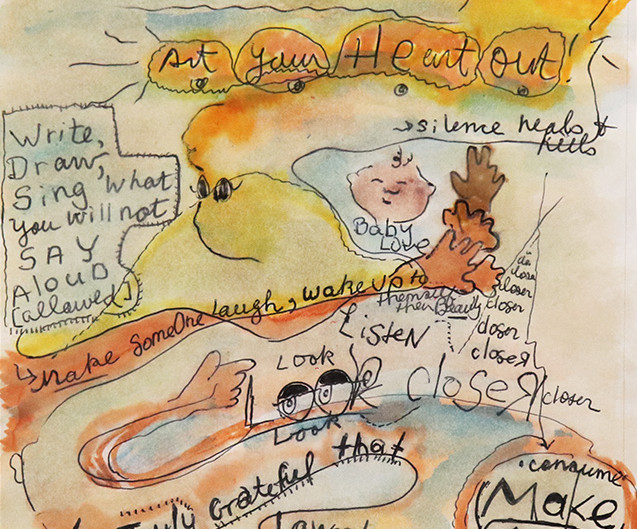 Art your Heart out!
→ silence heals &
Write,
Draw,
Sing what
you will not
SAY
ALOUD
[allowed]
Baby
Love
↳ Make SomeOne laugh, wake up to
then Beauty
LISTEN
closer
closer
closer
closer
closer
Look
LOOK closeR closer
Look
Truly grateful that
• consume •
Make